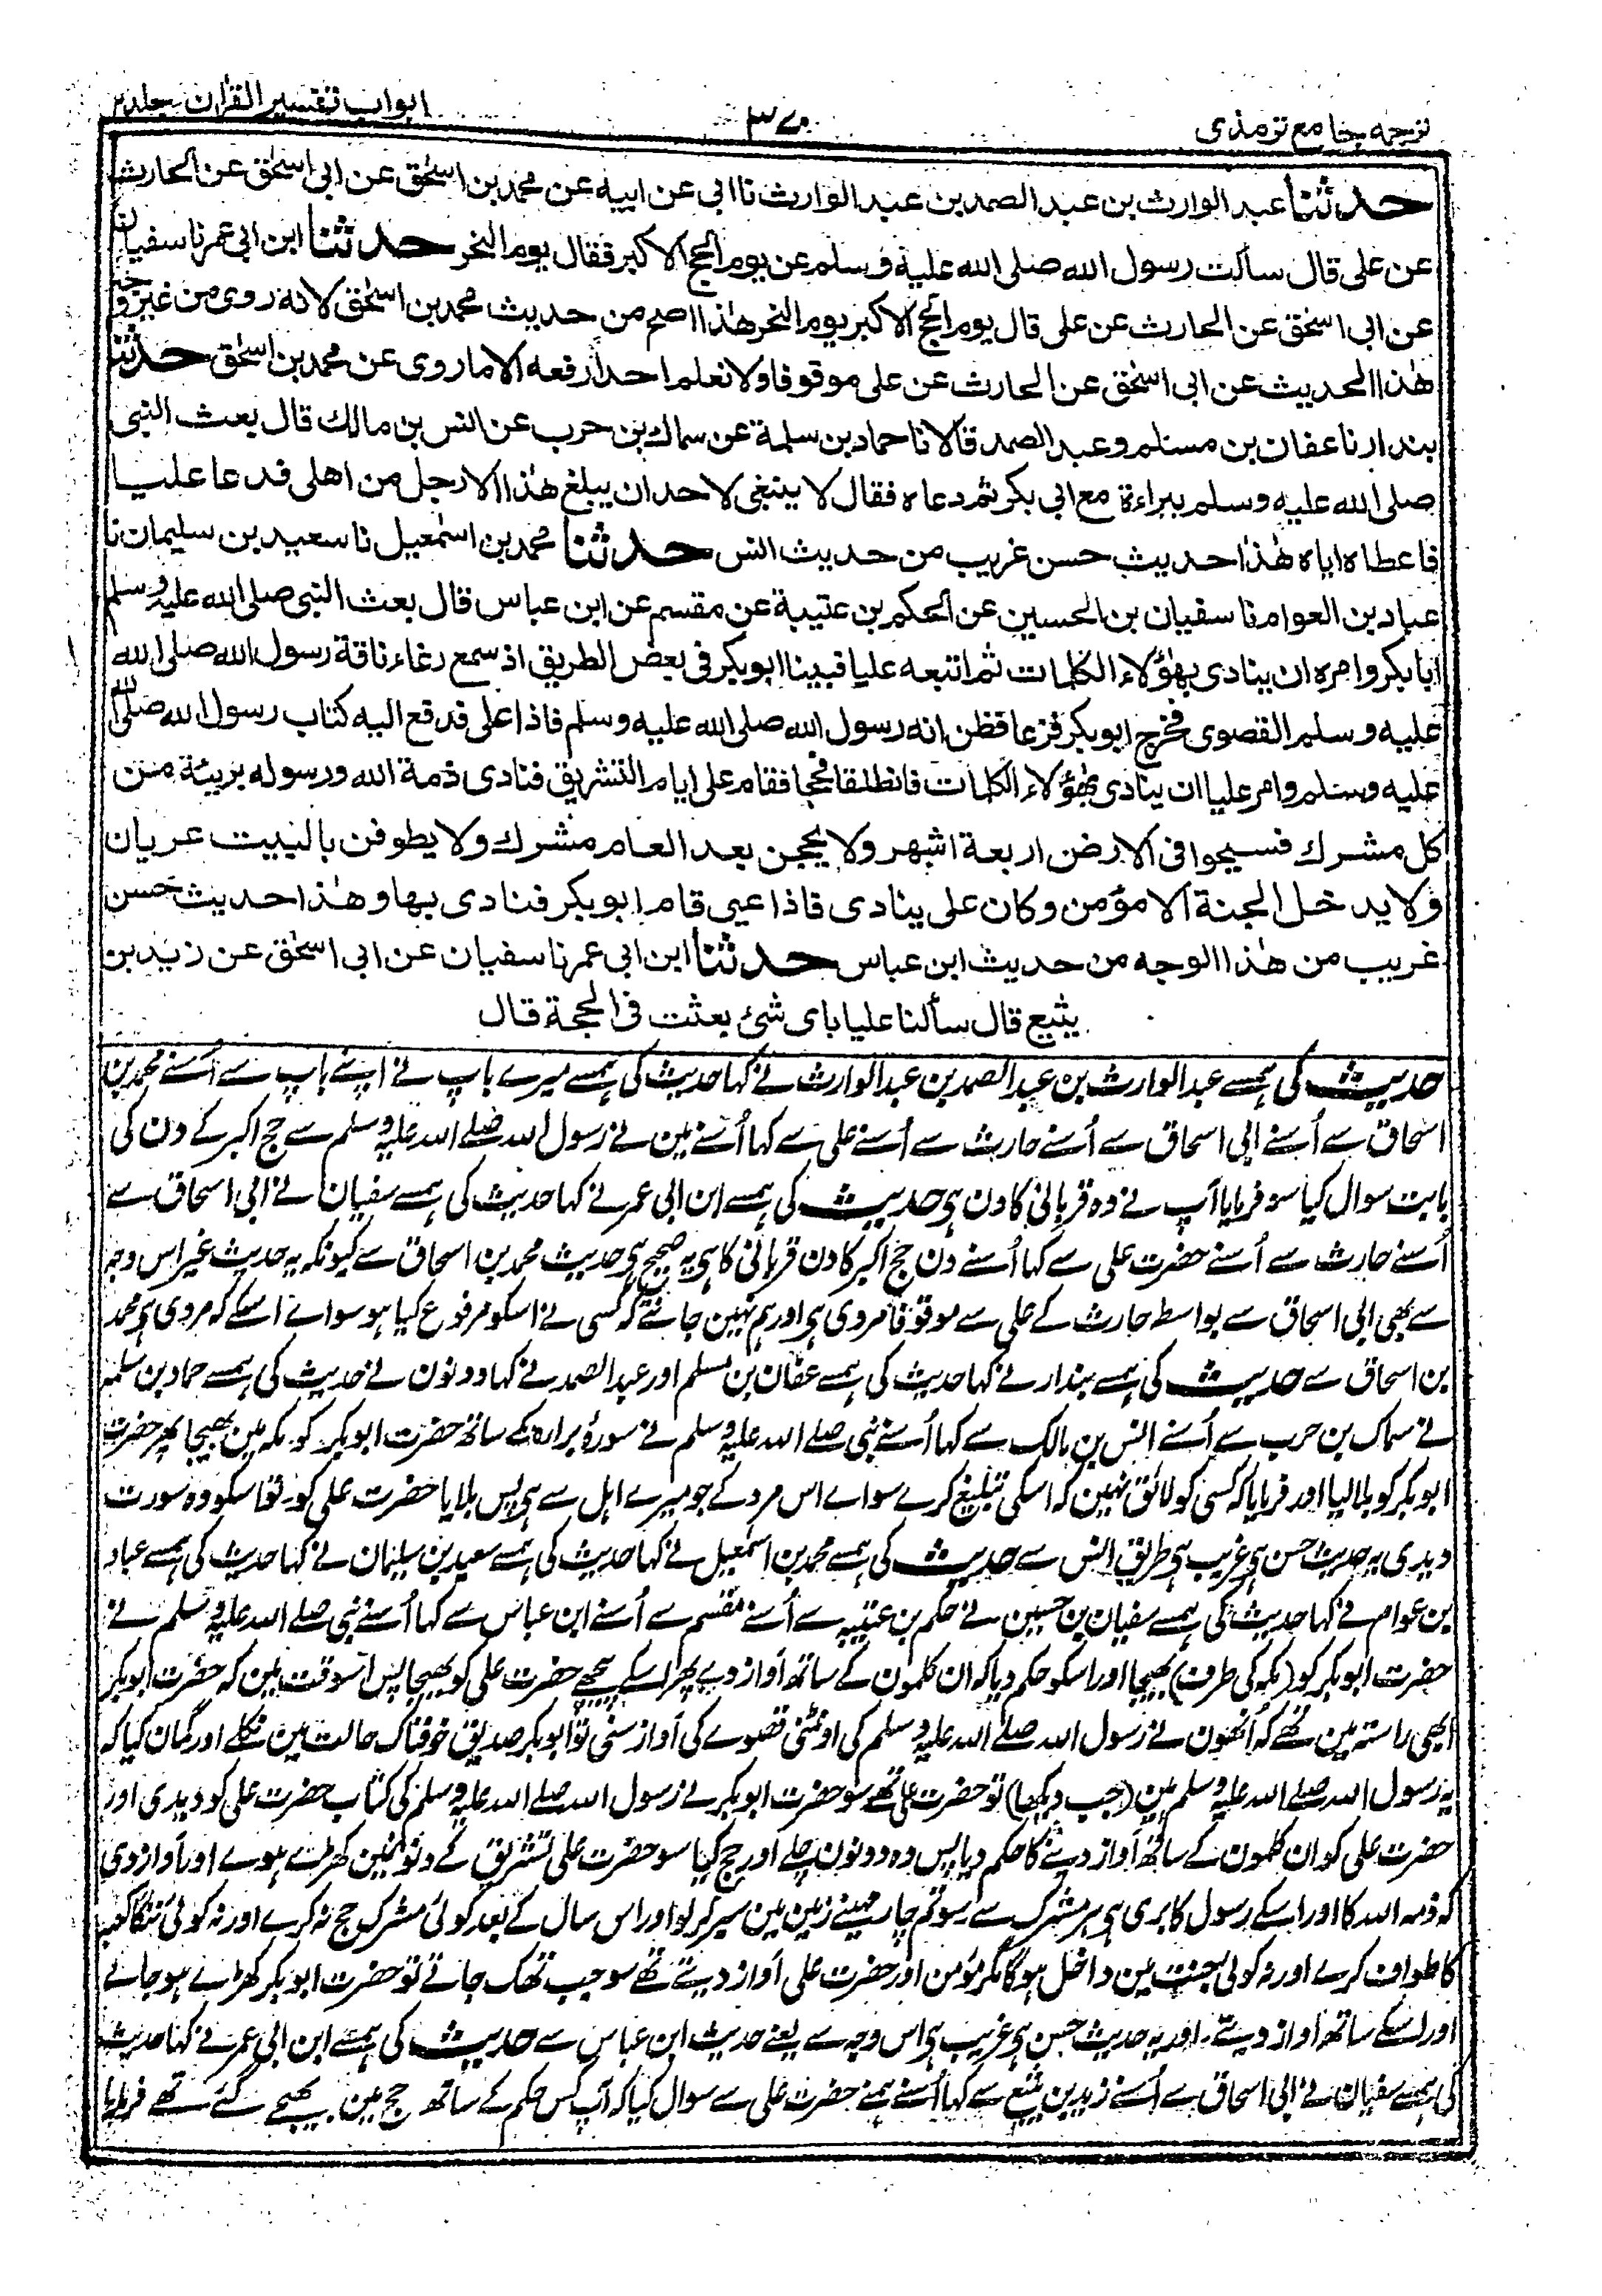 ترجمه جامع ترمذی
۳۷۰
ابواب تفسیر القرآن جلد ۲
حدثنا عبد الوارث بن عبد الصمد بن عبد الوارث نا ابی عن ابیه عن محمد بن اسحٰق عن ابی اسحٰق عن الحارث
عن علی قال سألت رسول الله صلی الله علیه وسلم عن یوم الحج الاکبر فقال یوم النحر حدثنا ابن ابی عمر نا سفیان
عن ابی اسحٰق عن الحارث عن علی قال یوم الحج الاکبر یوم النحر هٰذا اصح من حدیث محمد بن اسحٰق لانه روی من غیر وجه
هٰذا الحدیث عن ابی اسحٰق عن الحارث عن علی موقوفا ولا نعلم احدا رفعه الا ما روی عن محمد بن اسحٰق حدثنا
بندار نا عفان بن مسلم وعبد الصمد قالا نا حماد بن سلمة عن سماك بن حرب عن انس بن مالك قال بعث النبی
صلی الله علیه وسلم ببراءة مع ابی بکر ثم دعاه فقال لا ینبغی لاحد ان یبلغ هٰذا الا رجل من اهلی فدعا علیا
فاعطاه ایاه هٰذا حدیث حسن غریب من حدیث انس حدثنا محمد بن اسمٰعیل نا سعید بن سلیمان نا
عباد بن العوام نا سفیان بن الحسین عن الحکم بن عتیبة عن مقسم عن ابن عباس قال بعث النبی صلی الله علیه وسلم
ابا بکر وامره ان ینادی بهٰؤلاء الکلمات ثم اتبعه علیا فبینا ابوبکر فی بعض الطریق اذ سمع رغاء ناقة رسول الله صلی الله
علیه وسلم القصوی فخرج ابوبکر فزعا فظن انه رسول الله صلی الله علیه وسلم فاذا علی فدفع الیه کتاب رسول الله صلی الله
علیه وسلم وامر علیا ان ینادی بهٰؤلاء الکلمات فانطلقا فحجا فقام علی ایام التشریق فنادی ذمة الله ورسوله بریئة من
کل مشرك فسیحوا فی الارض اربعة اشهر ولا یحجن بعد العام مشرك ولا یطوفن بالبیت عریان
ولا یدخل الجنة الا مؤمن وکان علی ینادی فاذا عیی قام ابوبکر فنادی بها وهٰذا حدیث حسن
غریب من هٰذا الوجه من حدیث ابن عباس حدثنا ابن ابی عمر نا سفیان عن ابی اسحٰق عن زید بن
یثیع قال سألنا علیا بای شئ بعثت فی الحجة قال
حدیث کی ہمسے عبدالوارث بن عبدالصمد بن عبدالوارث نے کہا حدیث کی ہمسے میرے باپ نے اپنے باپ سے اُسنے محمد بن
اسحاق سے اُسنے ابی اسحاق سے اُسنے حارث سے اُسنے علی سے کہا اُسنے مین نے رسول اللہ صلے اللہ علیہ وسلم سے حج اکبر کے دن کی
بابت سوال کیا سو فرمایا آپ نے وہ قربانی کا دن ہی حدیث کی ہمسے ابن ابی عمر نے کہا حدیث کی ہمسے سفیان نے ابی اسحاق سے
اُسنے حارث سے اُسنے حضرت علی سے کہا اُسنے دن حج اکبر کا دن قربانی کا ہی یہ صحیح ہی حدیث محمد بن اسحاق سے کیونکہ یہ حدیث غیر اس وجہ
سے بھی ابی اسحاق سے بواسطہ حارث کے علی سے موقوفا مروی ہی اور ہم نہین جانتے کہ کسی نے اسکو مرفوع کیا ہو سواے اسکے کہ مروی ہی محمد
بن اسحاق سے حدیث کی ہمسے بندار نے کہا حدیث کی ہمسے عفان بن مسلم اور عبدالصمد نے کہا دونون نے حدیث کی ہمسے حماد بن سلمہ
نے سماک بن حرب سے اُسنے انس بن مالک سے کہا اُسنے نبی صلے اللہ علیہ وسلم نے سورۂ براءۃ کے ساتھ حضرت ابوبکر کو مکہ مین بھیجا پھر حضرت
ابوبکر کو بلالیا اور فرمایا کہ کسی کو لائق نہین کہ اسکی تبلیغ کرے سواے اس مرد کے جو میرے اہل سے ہی پس بلایا حضرت علی کو تو اسکو وہ سورت
دیدی یہ حدیث حسن ہی غریب ہی طریق انس سے حدیث کی ہمسے محمد بن اسمٰعیل نے کہا حدیث کی ہمسے سعید بن سلیمان نے کہا حدیث کی ہمسے عباد
بن عوام نے کہا حدیث کی ہمسے سفیان بن حسین نے حکم بن عتیبہ سے اُسنے مقسم سے اُسنے ابن عباس سے کہا اُسنے نبی صلے اللہ علیہ وسلم نے
حضرت ابوبکر کو (مکہ کی طرف) بھیجا اور اسکو حکم دیا کہ ان کلمون کے ساتھ آواز دے پھر اسکے پیچھے حضرت علی کو بھیجا پس اسوقت مین کہ حضرت ابوبکر
ابھی راستہ مین تھے کہ اُنھون نے رسول اللہ صلے اللہ علیہ وسلم کی اونٹنی قصوے کی آواز سنی تو ابوبکر صدیق خوفناک حالت مین نکلے اور گمان کیا کہ
یہ رسول اللہ صلے اللہ علیہ وسلم ہین (جب دیکھا) تو حضرت علی تھے سو حضرت ابوبکر نے رسول اللہ صلے اللہ علیہ وسلم کی کتاب حضرت علی کو دیدی اور
حضرت علی کو ان کلمون کے ساتھ آواز دینے کا حکم دیا پس وہ دونون چلے اور حج کیا سو حضرت علی تشریق کے دنونمین کھڑے ہوے اور آواز دی
کہ ذمہ اللہ کا اور اسکے رسول کا بری ہی ہر مشرک سے سو تم چار مہینے زمین مین سیر کرلو اور اس سال کے بعد کوئی مشرک حج نہ کرے اور نہ کوئی ننگا کعبہ
کا طواف کرے اور نہ کوئی جنت مین داخل ہوگا مگر مؤمن اور حضرت علی آواز دیتے تھے سو جب تھک جاتے تو حضرت ابوبکر کھڑے ہو جاتے
اور اسکے ساتھ آواز دیتے۔ اور یہ حدیث حسن ہی غریب ہی اس وجہ سے یعنے حدیث ابن عباس سے حدیث کی ہمسے ابن ابی عمر نے کہا حدیث
کی ہمسے سفیان نے ابی اسحاق سے اُسنے زید بن یثیع سے کہا اُسنے ہمنے حضرت علی سے سوال کیا کہ آپ کس حکم کے ساتھ حج مین بھیجے گئے تھے فرمایا